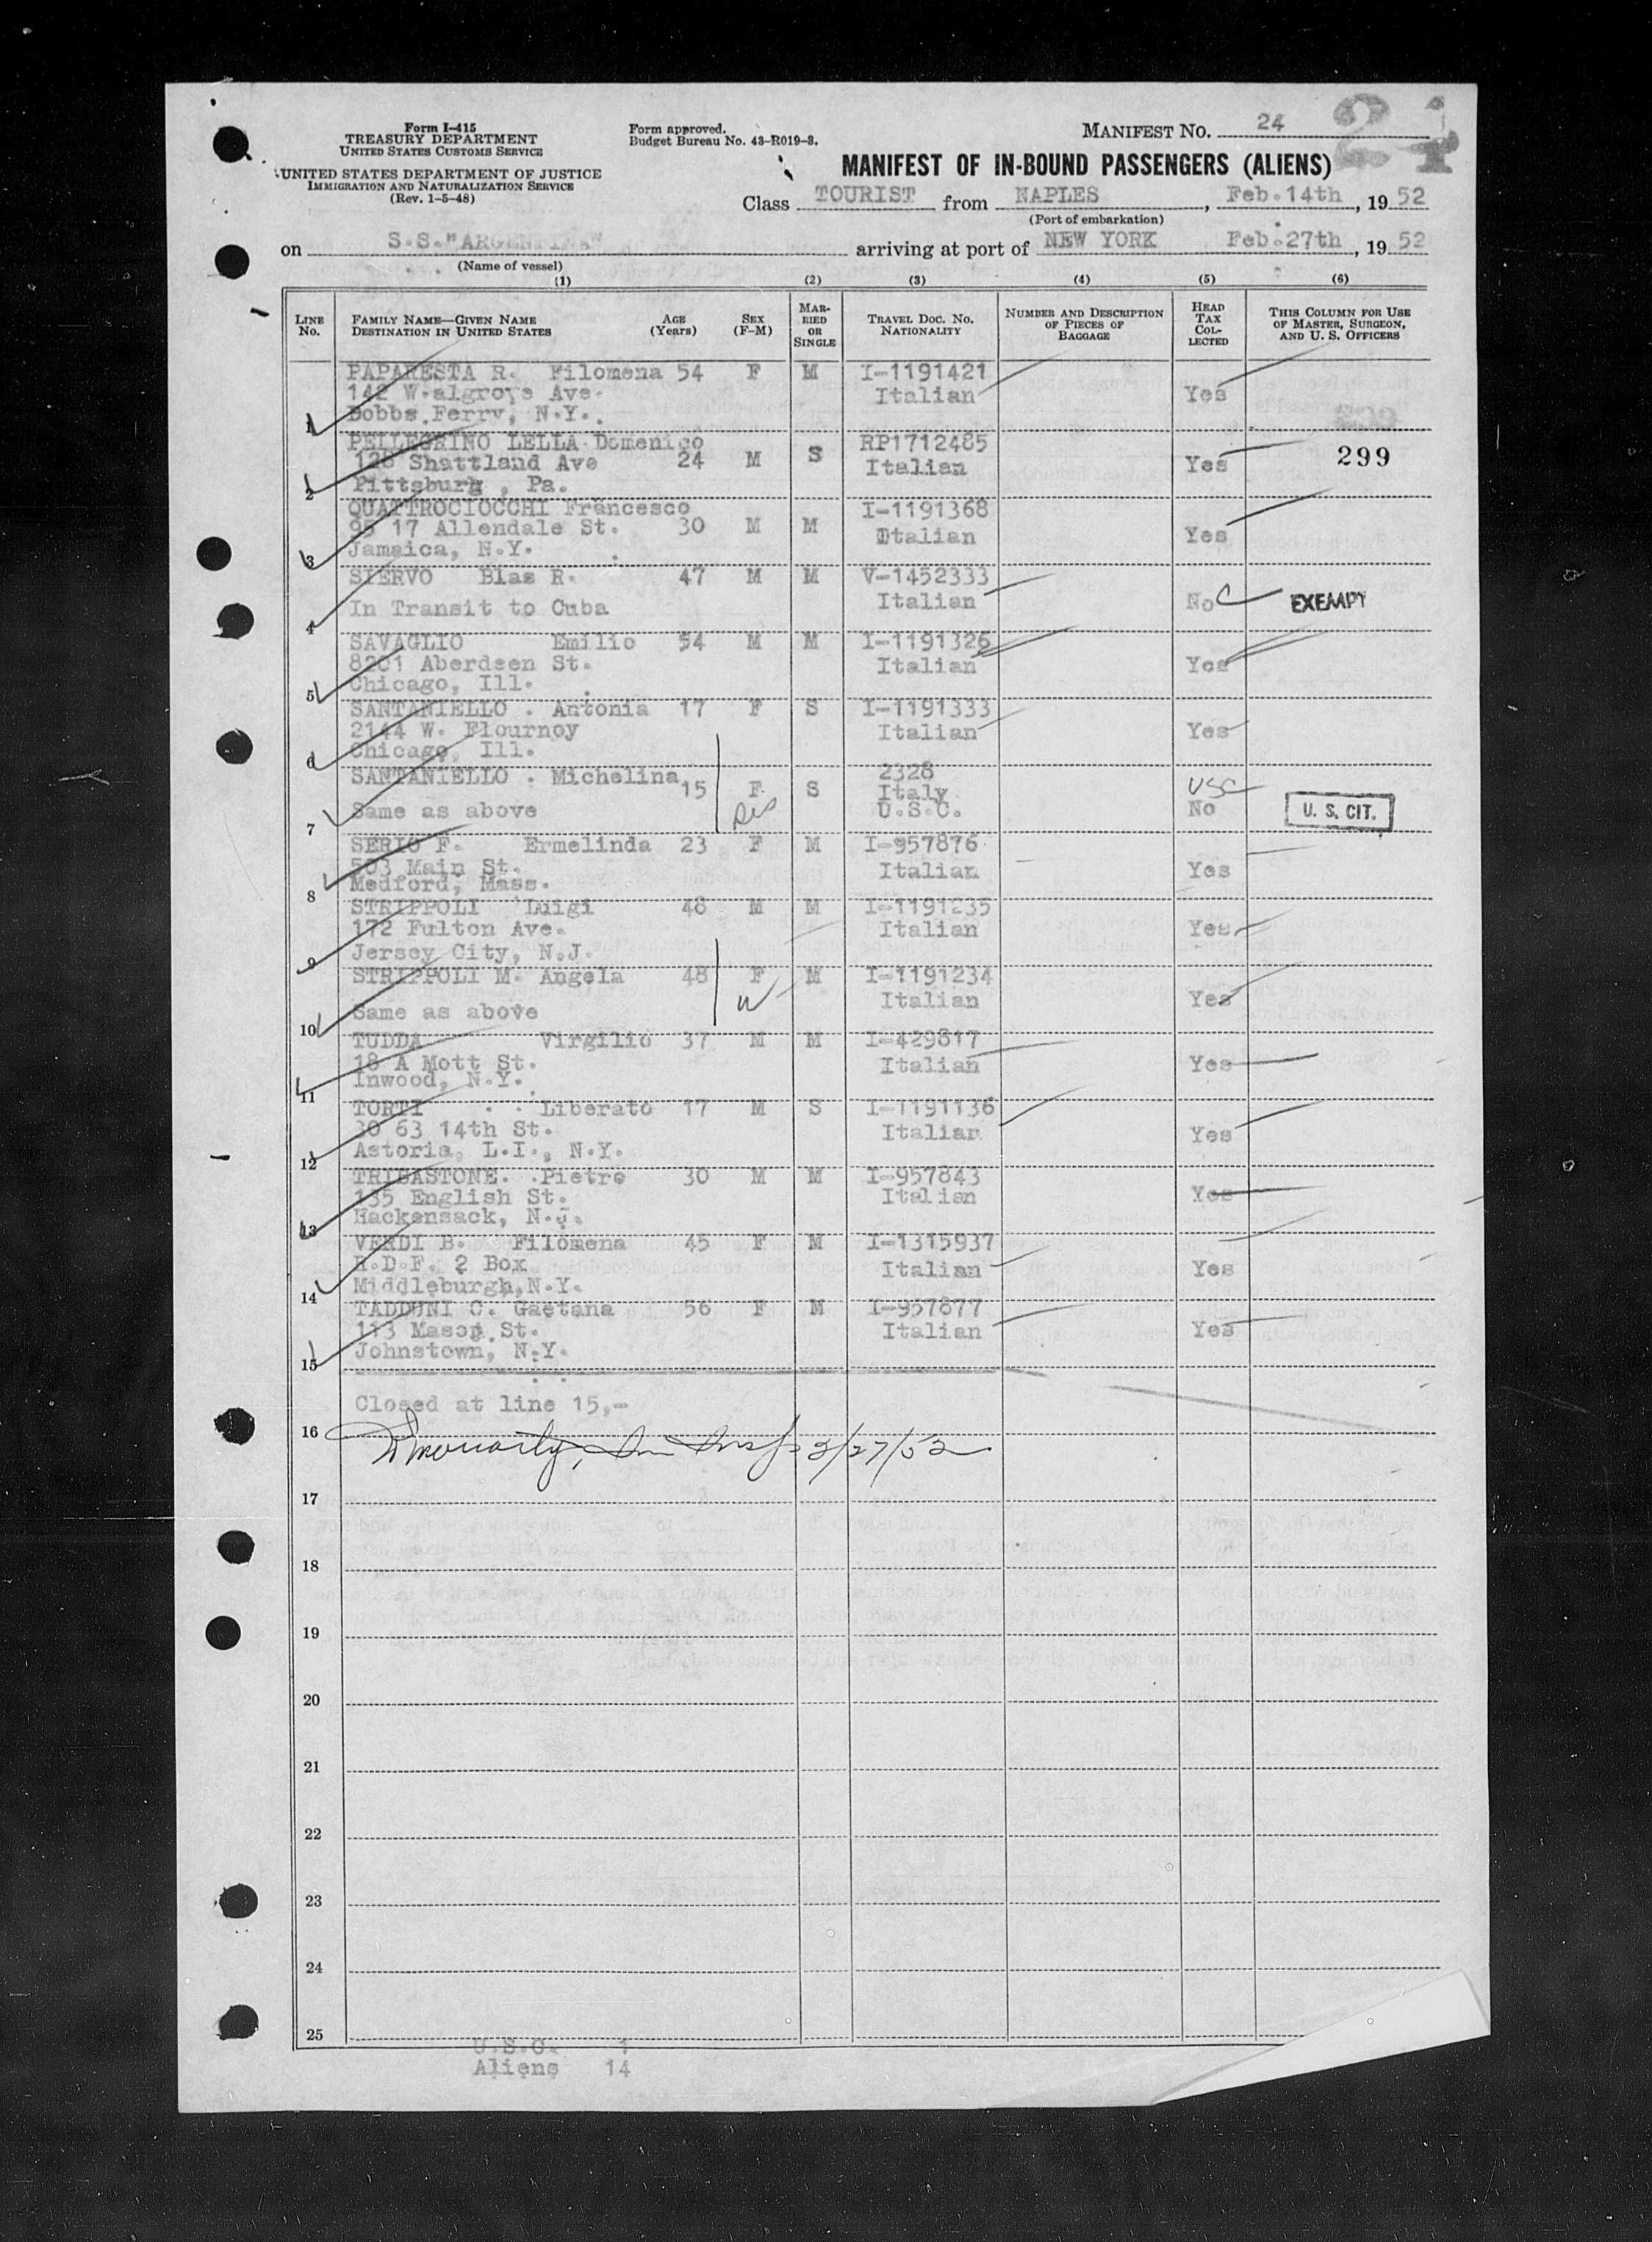 Form I-415
TREASURY DEPARTMENT
UNITED STATES CUSTOMS SERVICE
UNITED STATES DEPARTMENT OF JUSTICE
IMMIGRATION AND NATURALIZATION SERVICE
(Rev. 1-5-48)
Form approved.
Budget Bureau No. 43-R019-3.
MANIFEST No. 24
24
MANIFEST OF IN-BOUND PASSENGERS (ALIENS)
Class TOURIST from NAPLES, Feb.14th, 19 52
(Port of embarkation)
on S.S."ARGENTINA" arriving at port of NEW YORK Feb.27th, 19 52
(Name of vessel)
(1) (2) (3) (4) (5) (6)
LINE No. FAMILY NAME—GIVEN NAME DESTINATION IN UNITED STATES AGE (Years) SEX (F-M) MARRIED OR SINGLE TRAVEL DOC. NO. NATIONALITY NUMBER AND DESCRIPTION OF PIECES OF BAGGAGE HEAD TAX COLLECTED THIS COLUMN FOR USE OF MASTER, SURGEON, AND U. S. OFFICERS
PAPARESTA R. Filomena 54 F M I-1191421
142 W.algroys Ave. Italian Yes
1 Dobbs.Ferry, N.Y.
PELLEGRINO LELLA Domenico RP1712485
128 Shattland Ave 24 M S Italian Yes 299
2 Pittsburg, Pa.
QUATTROCIOCCHI Francesco I-1191368
95 17 Allendale St. 30 M M Italian Yes
3 Jamaica, N.Y.
SIERVO Blas R. 47 M M V-1452333
Italian
4 In Transit to Cuba No EXEMPT
SAVAGLIO Emilio 54 M M I-1191326
8201 Aberdeen St. Italian Yes
5 Chicago, Ill.
SANTANIELLO . Antonia 17 F S I-1191333
2144 W. Flournoy Italian Yes
6 Chicago, Ill.
SANTANIELLO . Michelina 15 F S 2328
Italy USC
7 Same as above U.S.C. No U. S. CIT.
SERIO F. Ermelinda 23 F M I-957876
503 Main St. Italian Yes
8 Medford, Mass.
STRIPPOLI Luigi 48 M M I-1191235
172 Fulton Ave. Italian Yes
9 Jersey City, N.J.
STRIPPOLI M. Angela 48 F M I-1191234
W Italian Yes
10 Same as above
TUDDA Virgilio 37 M M I-429817
18 A Mott St. Italian Yes
11 Inwood, N.Y.
TORTI Liberato 17 M S I-1191136
30 63 14th St. Italian Yes
12 Astoria, L.I., N.Y.
TRIBASTONE. Pietro 30 M M I-957843
135 English St. Italian Yes
13 Hackensack, N.J.
VERDI B. Filomena 45 F M I-1315937
R.D.F. 2 Box Italian Yes
14 Middleburgh,N.Y.
TADDUNI C. Gaetana 56 F M I-957877
113 Mason St. Italian Yes
15 Johnstown, N.Y.
Closed at line 15,-
16
2/27/52
17
18
19
20
21
22
23
24
25
U.S.C. 1
Aliens 14